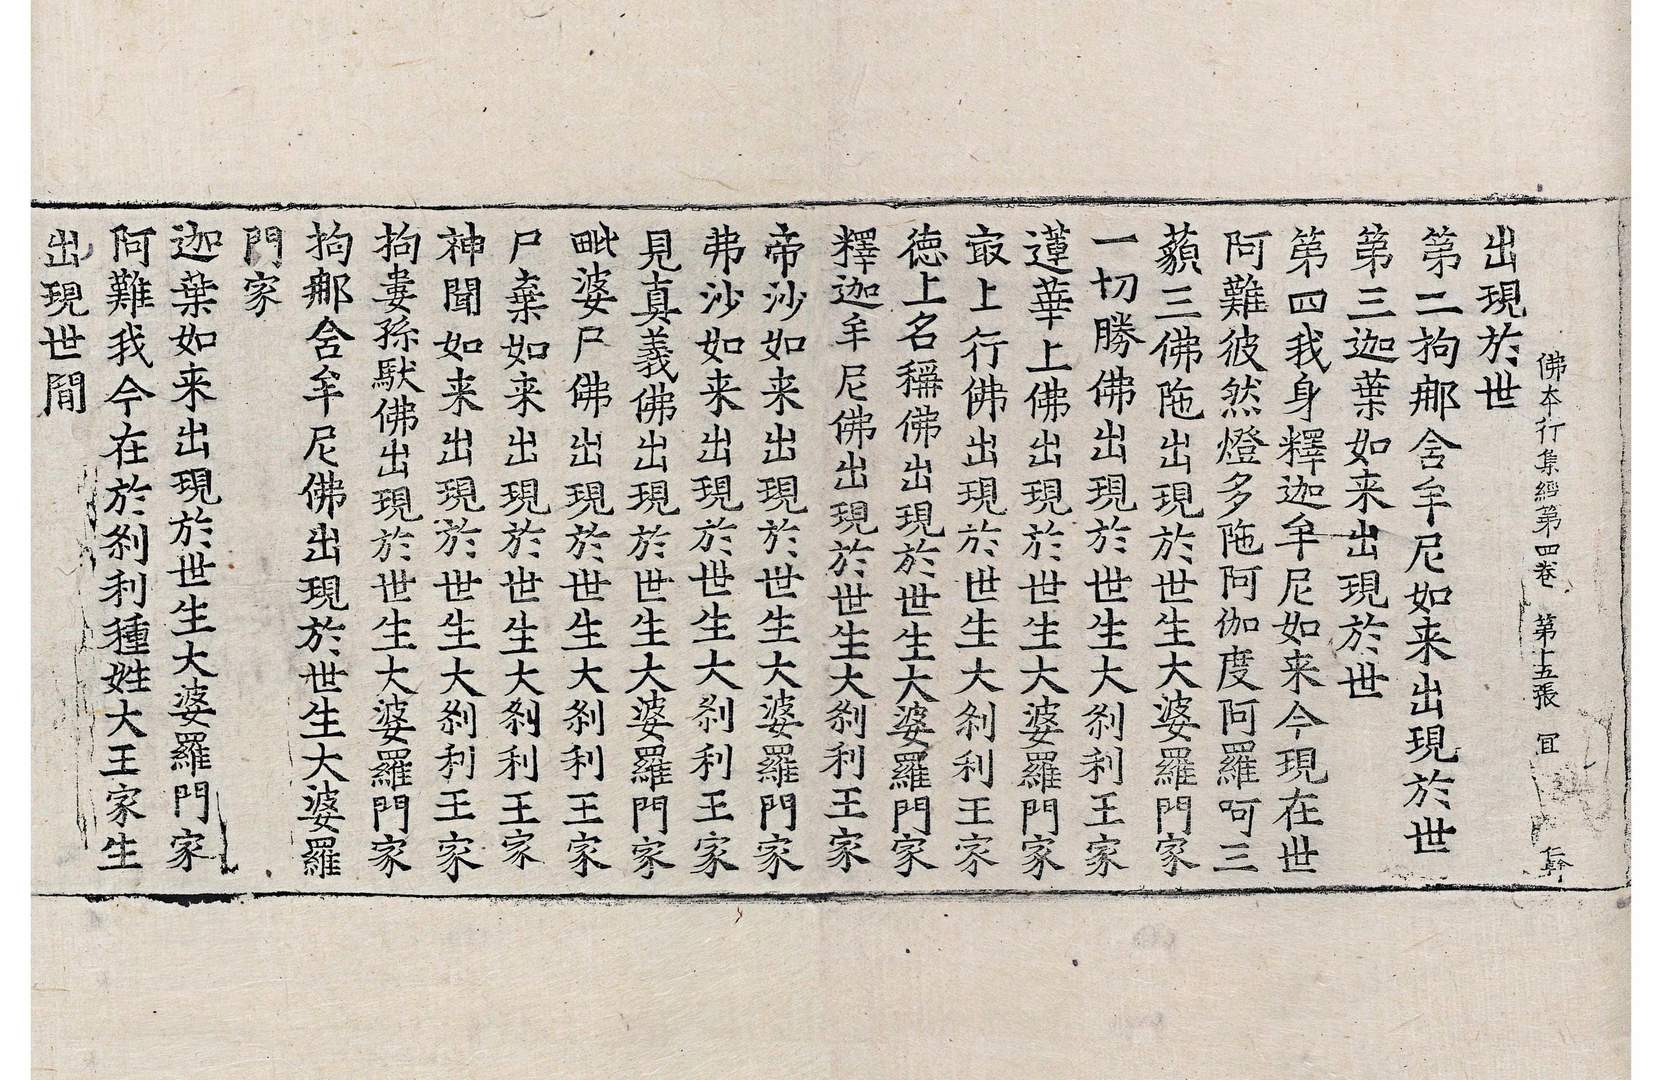 佛本行集經第四卷 第十五張 冝 仁幹
出現於世
第二拘郍舍牟尼如来出現於世
第三迦葉如来出現於世
第四我身釋迦牟尼如来今現在世
阿難彼然燈多陁阿伽度阿羅呵三
藐三佛陁出現於世生大婆羅門家
一切勝佛出現於世生大刹利王家
蓮華上佛出現於世生大婆羅門家
㝡上行佛出現於世生大刹利王家
德上名稱佛出現於世生大婆羅門家
釋迦牟尼佛出現於世生大刹利王家
帝沙如来出現於世生大婆羅門家
弗沙如来出現於世生大刹利王家
見真義佛出現於世生大婆羅門家
毗婆尸佛出現於世生大刹利王家
尸棄如来出現於世生大刹利王家
神聞如来出現於世生大刹利王家
拘婁孫馱佛出現於世生大婆羅門家
拘郍舍牟尼佛出現於世生大婆羅
門家
迦葉如来出現於世生大婆羅門家
阿難我今在於刹利種姓大王家生
出現世間